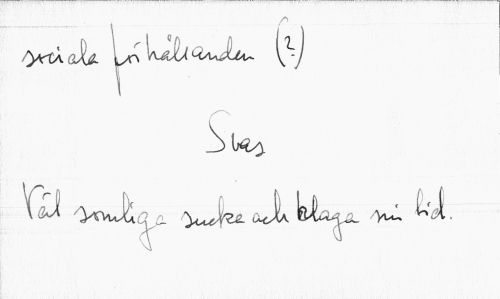 sociala förhållanden (?)
Svas
Väl somliga sucka och klaga sin tid.